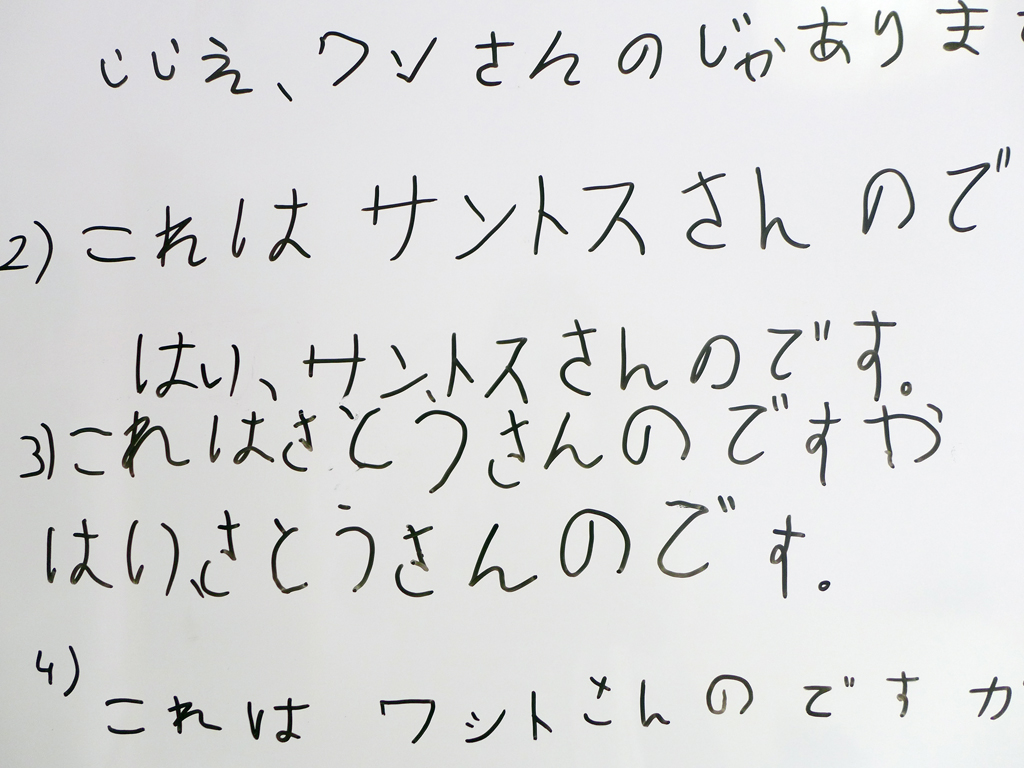 いいえ、ワンさんのじゃありま
2) これは サントス さん ので
はい、サントスさんのです。
3) これはさとうさんのですか
はい、さとうさんのです。
4) これは ワットさん の です か